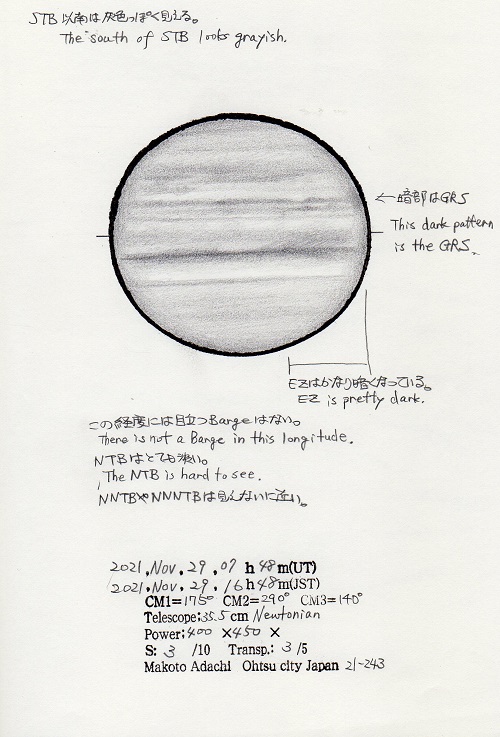 STB以南は灰色っぽく見える。
The south of STB looks grayish.
←暗部はGRS
This dark pattern
is the GRS.
EZはかなり暗くなっている。
EZ is pretty dark.
この経度には目立つBargeはない。
There is not a Barge in this longitude.
NTBはとても淡い。
The NTB is hard to see.
NNTBやNNNTBは見えないに近い。
2021, Nov, 29, 07 h 48 m(UT)
2021, Nov, 29, 16 h 48 m(JST)
CM1=175° CM2=290° CM3=140°
Telescope;35.5 cm Newtonian
Power;400 ×450 ×
S: 3 /10 Transp.: 3 /5
Makoto Adachi Ohtsu city Japan 21-243